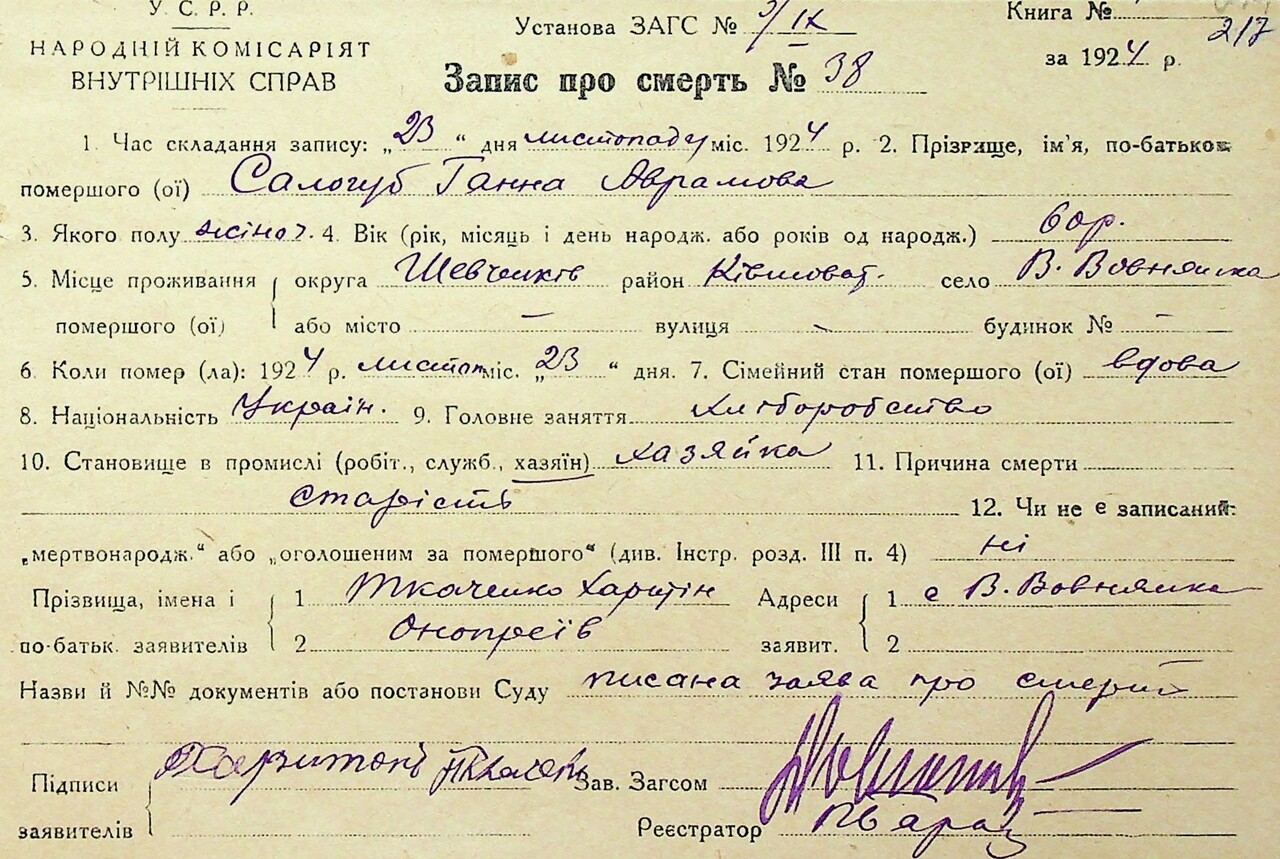 У. С. Р. Р.
НАРОДНІЙ КОМІСАРІЯТ
ВНУТРІШНІХ СПРАВ
Установа ЗАГС № 9/IX
Запис про смерть № 38
Книга №
217
за 1924 р.
1. Час складання запису: „23“ дня листопаду міс. 1924 р. 2. Прізвище, ім'я, по-батькові
помершого (ої) Салогуб Ганна Аврамова
3. Якого полу жіноч. 4. Вік (рік, місяць і день народж. або років од народж.) 60 р.
5. Місце проживання помершого (ої) округа Шевченків район село В. Вовнянка
або місто — вулиця — будинок № —
6. Коли помер (ла): 1924 р. листоп. міс. „23“ дня. 7. Сімейний стан помершого (ої) вдова
8. Національність Україн. 9. Головне заняття хліборобство
10. Становище в промислі (робіт., служб., хазяїн) хазяйка 11. Причина смерти
старість 12. Чи не є записаний:
„мертвонародж.“ або „оголошеним за помершого“ (див. Інстр. розд. III п. 4) ні
Прізвища, імена і по-батьк. заявителів 1 Ткаченко Харитін Адреси заявит. 1 с В. Вовнянка
2 Онопреїв 2
Назви й №№ документів або постанови Суду писана заява про смерть
Підписи заявителів Харитон Зав. Загсом
Реєстратор